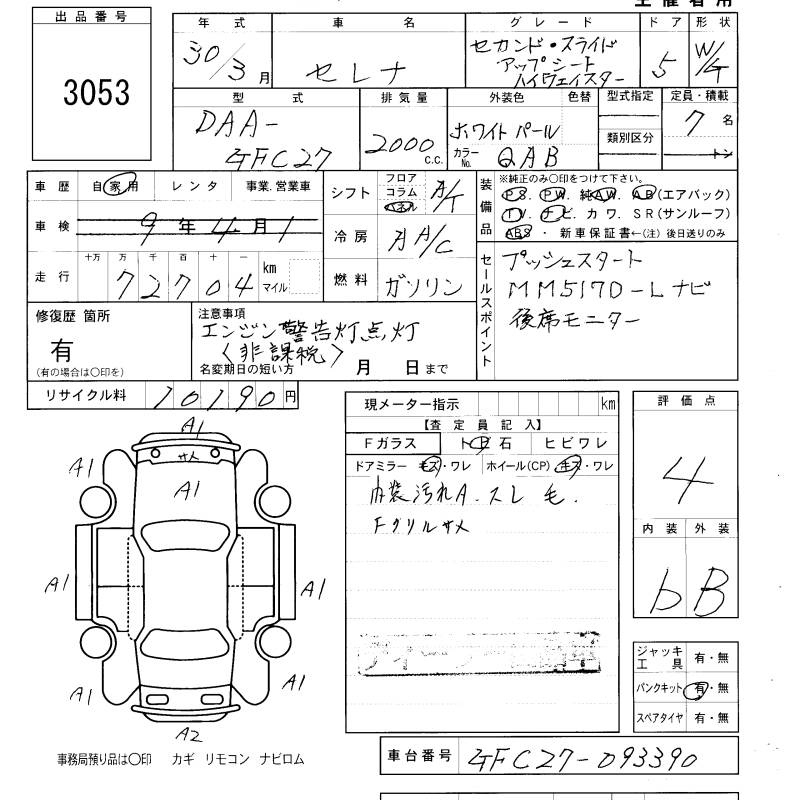 主催者用
出品番号
3053
年式 車名 グレード ドア 形状
30/3月 セレナ セカンド・スライド アップシート ハイウェイスター 5 W/G
型式 排気量 外装色 色替 型式指定 定員・積載
DAA-GFC27 2000 c.c. ホワイトパール 類別区分 7名 トン
カラーNo. QAB
車歴 自家用 レンタ 事業.営業車
車検 9年4月1
走行 十万 万 千 百 十 一 km マイル
72704
シフト フロア コラム パネル A/T
冷房 AA/C
燃料 ガソリン
装備品 ※純正のみ〇印をつけて下さい。
PS. PW. 純AW. AB(エアバック)
TV. ナビ. カワ. SR(サンルーフ)
ABS・新車保証書←(注)後日送りのみ
セールスポイント
プッシュスタート
MM517D-Lナビ
後席モニター
修復歴 箇所
有
(有の場合は〇印を)
注意事項
エンジン警告灯点灯
〈非課税〉
名変期日の短い方 月 日まで
リサイクル料 10190円
現メーター指示 km
【査定員記入】
Fガラス ト 石 ヒビワレ
ドアミラー キズ・ワレ ホイール(CP) キズ・ワレ
内装汚れA.スレ 毛.
Fグリルサメ
評価点
4
内装 外装
b B
A1
サメ
A1
A1 A1
A1 A1
A1 A1
A2
ジャッキ工具 有・無
パンクキット 有・無
スペアタイヤ 有・無
事務局預り品は〇印 カギ リモコン ナビロム
車台番号 GFC27-093390